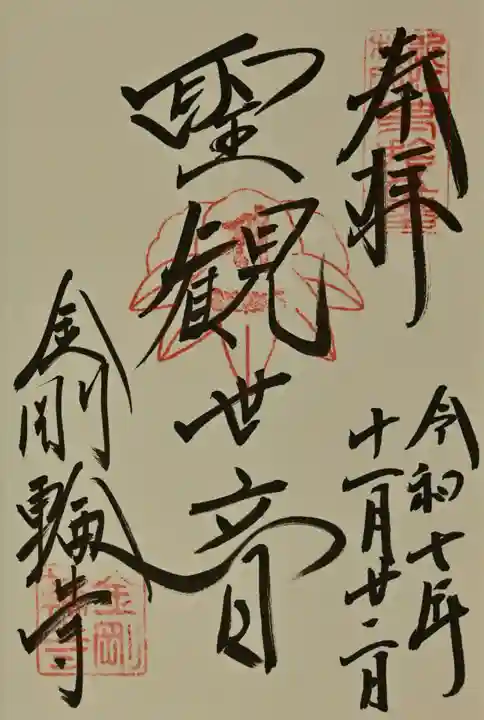 奉拝
令和七年
十一月廿二日
聖観世音
金剛輪寺
金剛輪寺